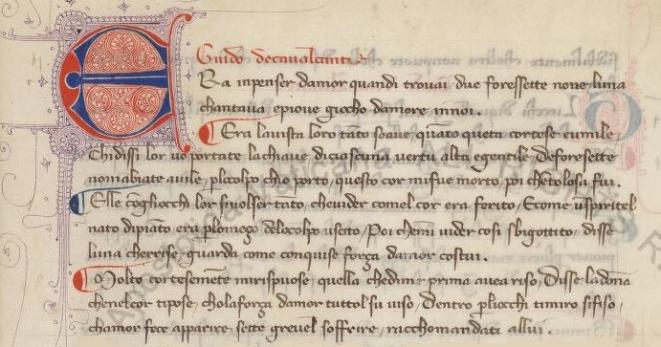 Guido de cavalcanti.
Era inpenser damor quandi trovai due foressette nove luna
chantava epiove giocho damore innoi.
Era lavista loro tāto soave, quāto queta cortese eumile,
Chidissi lor vo portate lachiave diciascuna vertu alta egentile, deforesette
nomabiate avile, plocolpo chio porto, questo cor mifue morto, poi chētolosa fui.
Elle cogliocchi lor sivolser tāto, chevider comel cor era ferito, Ecome ūspiritel
nato dipiāto era plomezo delocolpo uscito, Poi chemi vider cosi sbigottito, disse
luna cherrise, guarda come conquise força damor costui.
Molto cortesemēte mirispuose quella chedime prima avea riso, Disse ladōna
chenelcor tipose, cholaforça damor tuttol su viso, dentro pliocchi timiro sifiso,
chamor fece apparire, sette grevel soffrire, racchomandati allui.